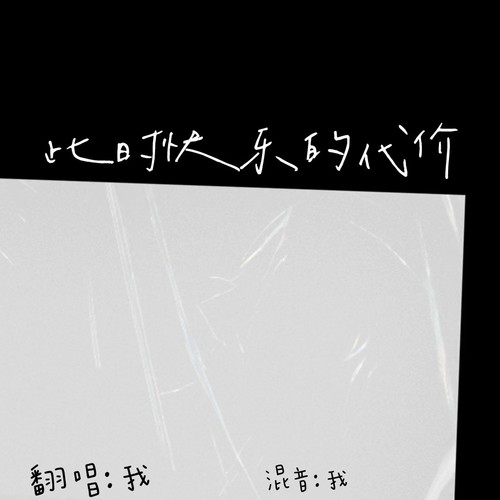 此时快乐的代价
翻唱:我
混音:我